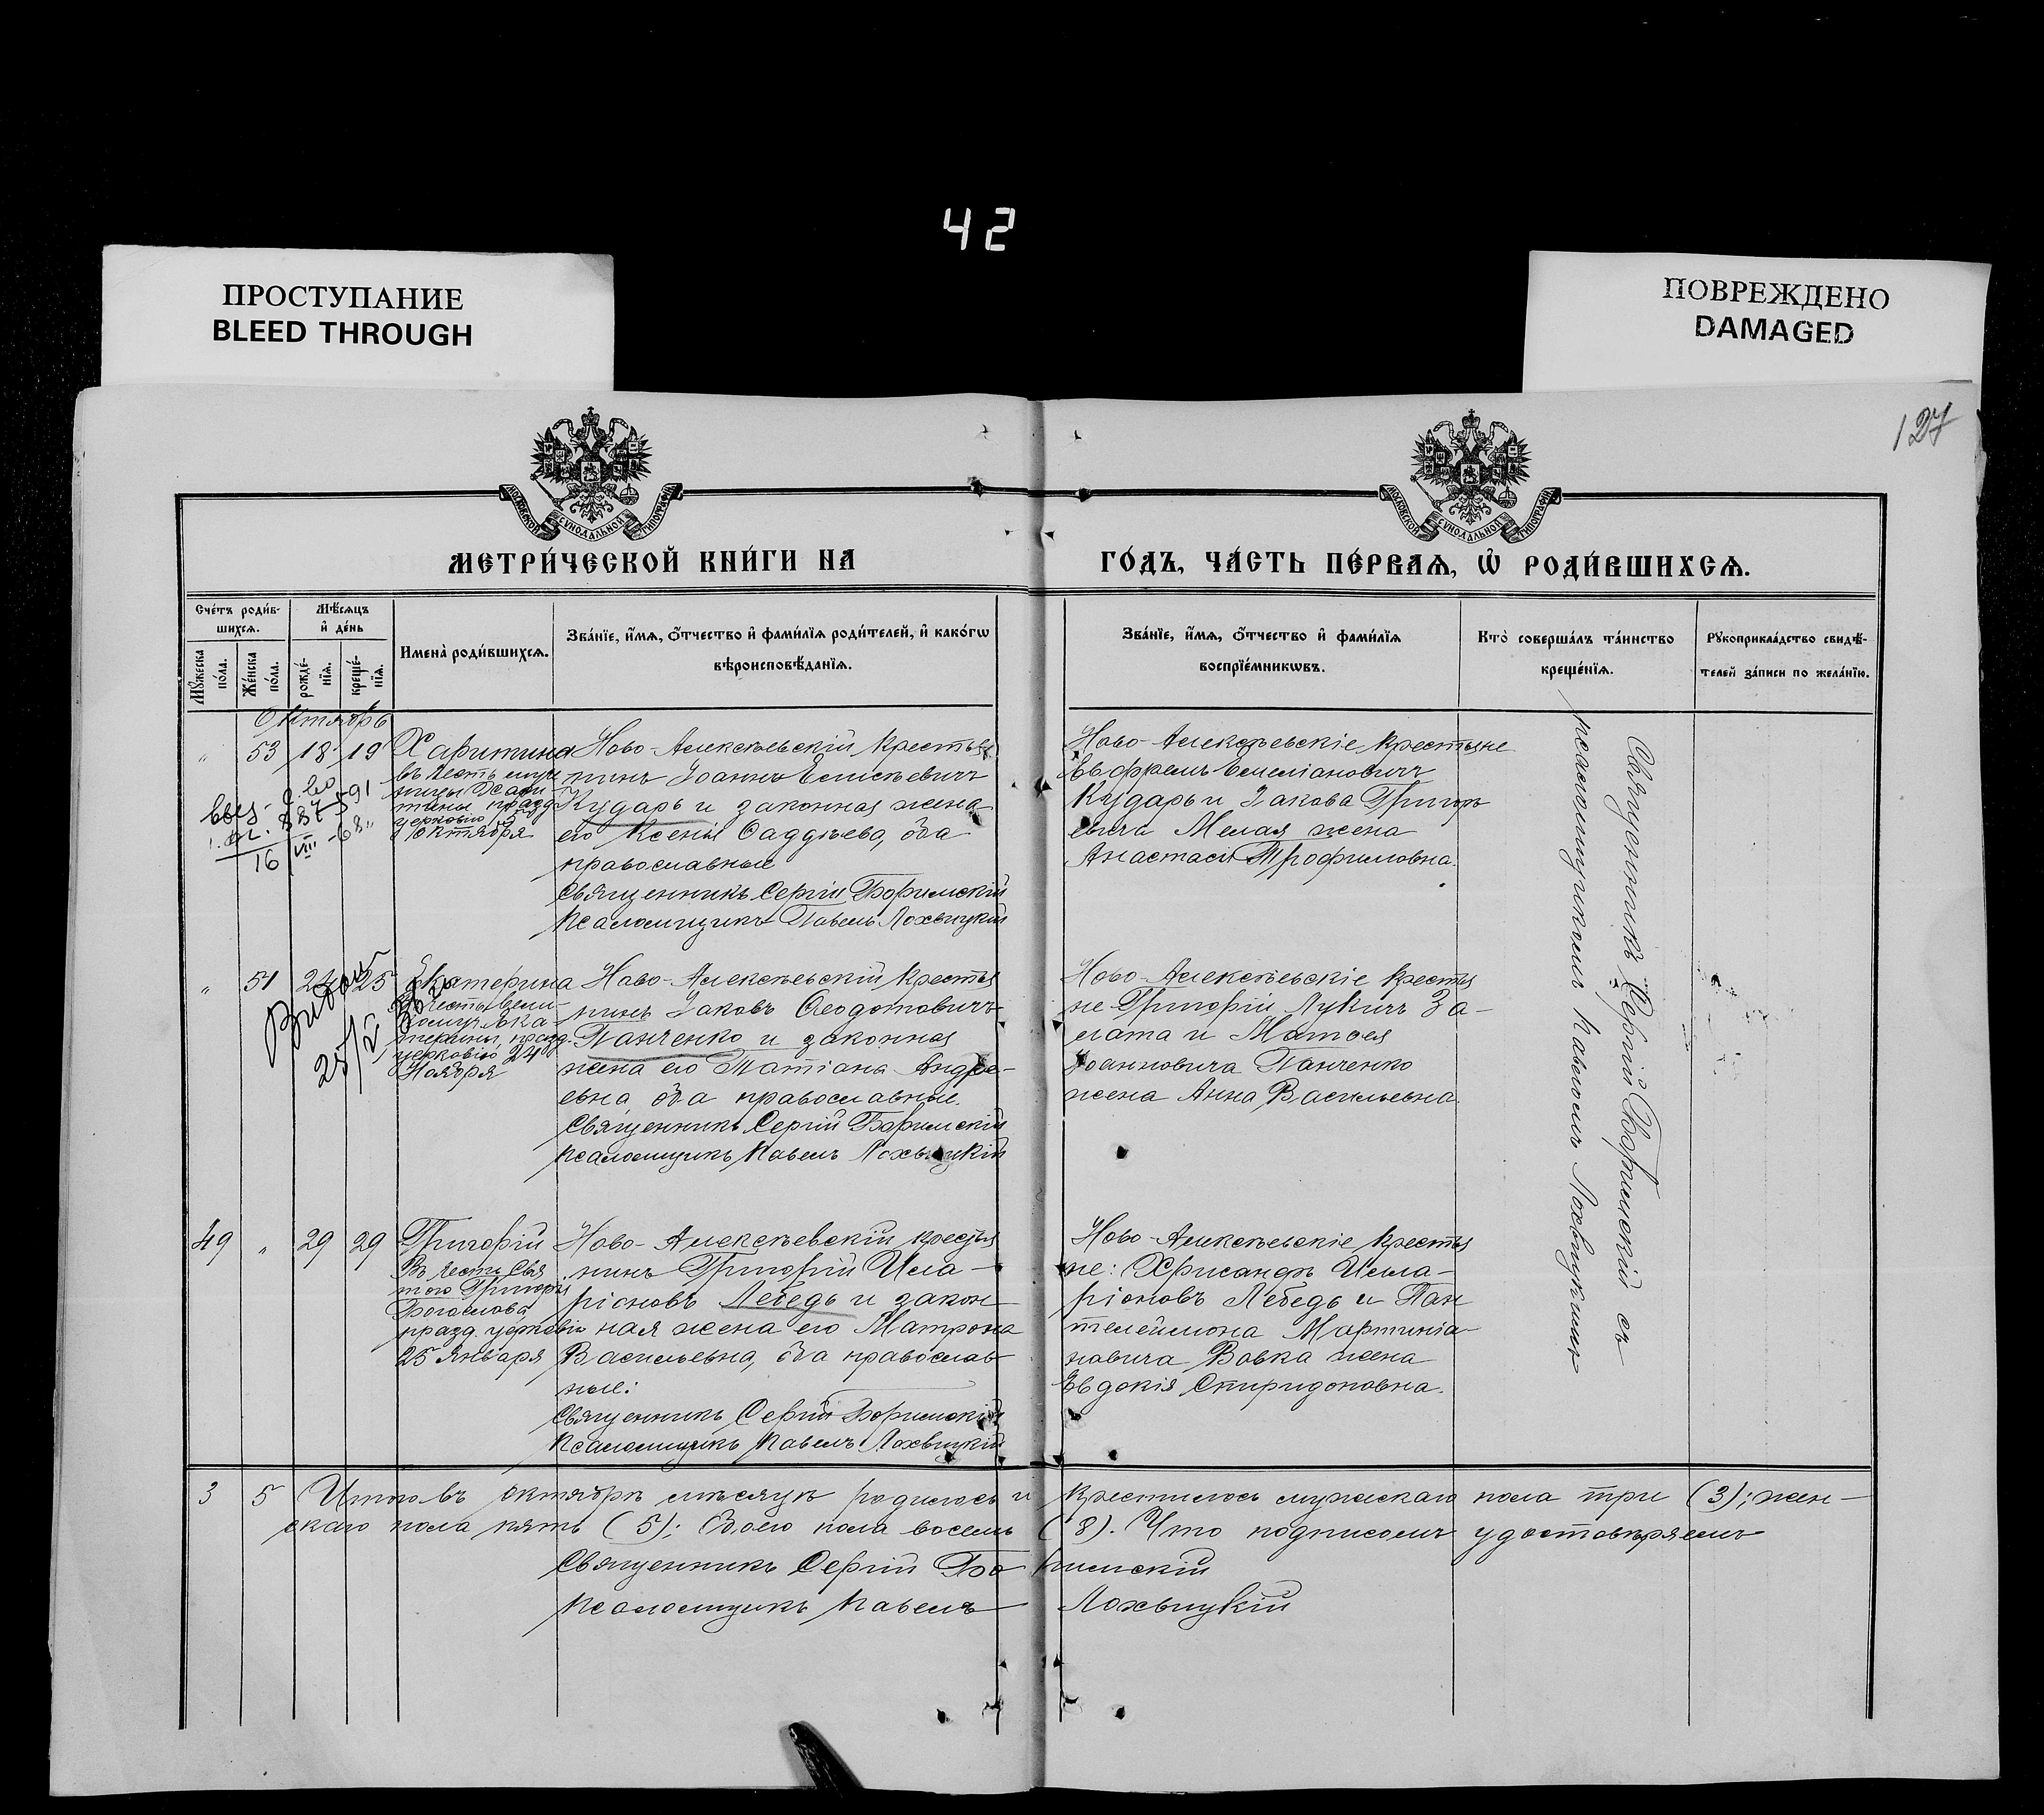 42
ПРОСТУПАНИЕ
BLEED THROUGH
ПОВРЕЖДЕНО
DAMAGED
127
МОСКОВСКОЙ СѴНОДАЛЬНОЙ ТИПОГРАФІИ
МОСКОВСКОЙ СѴНОДАЛЬНОЙ ТИПОГРАФІИ
МЕТРИ́ЧЕСКОЙ КНИ́ГИ НА
ГО́ДЪ, ЧА́СТЬ ПЕ́РВАѦ, Ѡ҆ РОДИ́ВШИХСѦ.
Сче́тъ роди́в-
шихсѧ.
Мѣ́сѧцъ
и҆ де́нь
Мꙋ́жеска
по́ла.
Же́нска
по́ла.
рожде́-
нїѧ.
креще́-
нїѧ.
Имена̀ роди́вшихсѧ.
Зва́нїе, и҆́мѧ, ѻ҆́тчество и҆ фами́лїѧ роди́телей, и҆ како́гѡ
вѣроисповѣ́данїѧ.
Зва́нїе, и҆́мѧ, ѻ҆́тчество и҆ фами́лїѧ
воспрїе́мникѡвъ.
Кто̀ соверша́лъ та́инство
креще́нїѧ.
Рꙋкоприкла́дство свидѣ́-
телей за́писи по жела́нїю.
Октябрь
„ 53 18 19
Харитина
въ честь муче
ницы Хари
тины, празд.
церковію 5
Октября
16
Ново-Алексѣевскій крестья
нинъ Іоаннъ Елисѣевичъ
Кударь и законная жена
его Ксенія Фаддѣева, оба
православные
Священникъ Сергій Боримскій
Псаломщикъ Павелъ Лохвицкій
Ново-Алексѣевскіе крестьяне
Евфремъ Емеліановичъ
Кударь и Іакова Григорь
евича Мелая жена
Анастасія Трофимовна.
Священникъ Сергій Боримскій съ
псаломщикомъ Павломъ Лохвицкимъ
„ 54 24 25
Екатерина
Въ честь вели-
комуч. Ека-
терины, празд.
церковію 24
Ноября
Ново-Алексѣевскій крестья
нинъ Іаковъ Феодотовичъ
Панченко и законная
жена его Татіана Андре-
евна, оба православные.
Священникъ Сергій Боримскій
Псаломщикъ Павелъ Лохвицкій
Ново-Алексѣевскіе крестья
не Григорій Лукичъ За-
лата и Матѳея
Іоанновича Панченко
жена Анна Васильевна.
49 „ 29 29
Григорій
Въ честь Свя
того Григорія
Богослова
празд. церковію
25 Января
Ново-Алексѣевскій крестья
нинъ Григорій Ила-
ріоновъ Лебедь и закон
ная жена его Матрона
Васильевна, оба православ
ные:
Священникъ Сергій Боримскій
Псаломщикъ Павелъ Лохвицкій
Ново-Алексѣевскіе крестья
не: Хрисанфъ Илла-
ріоновъ Лебедь и Пан
телеймона Мартиніа-
новича Вовка жена
Евдокія Спиридоновна.
3 5 Итого въ октябрѣ мѣсяцѣ родилось и крестилось мужескаго пола три (3); жен-
скаго пола пять (5); Обоего пола восемь (8). Что подписомъ удостовѣряемъ
Священникъ Сергій Боримскій
Псаломщикъ Павелъ Лохвицкій